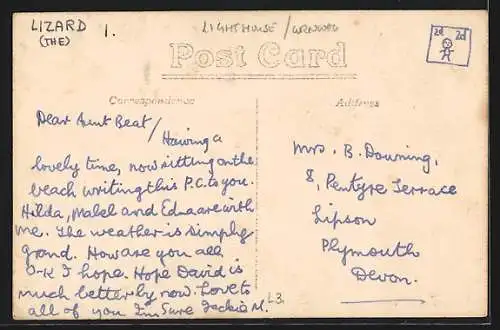 LIZARD
(THE)
1.
LIGHTHOUSE / CORNWALL
2d 2d
Post Card
Correspondence
Address
Dear Aunt Beat /
Having a
lovely time, now sitting on the
beach writing this P.C. to you.
Hilda, Mabel and Edna are with
me. The weather is simply
grand. How are you all
O-K I hope. Hope David is
much better by now. Love to
all of you I'm Sure Jackie M.
L3.
Mrs. B. Downing,
8, Pentyre Terrace
Lipson
Plymouth
Devon.